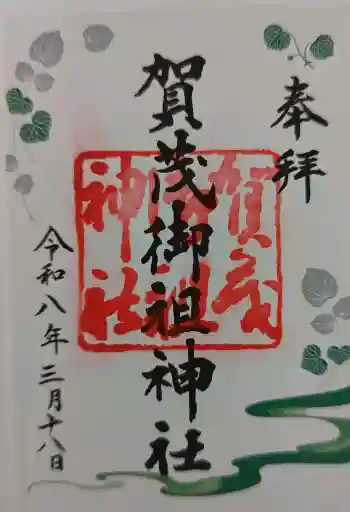 奉拝
賀茂御祖神社
令和八年三月十八日
賀茂
御祖
神社